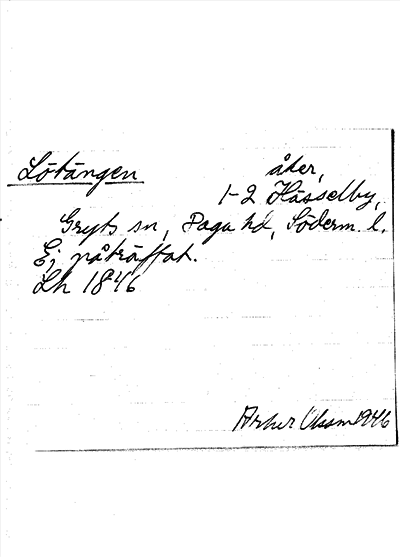 Lötängen åker,
1-2 Hässelby,
Gryts sn, Daga hd, Söderm. l.
Ej påträffat.
Lh 1846
Arthur Olsson 1946